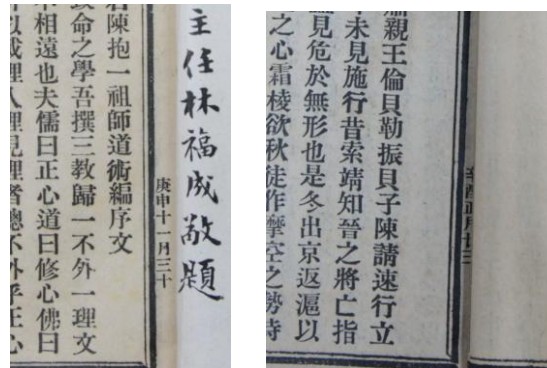 主任林福成敬題
庚申十一月三十
陳抱一祖師道術編序文
命之學吾撰三教歸一不外一理文
相遠也夫儒曰正心道曰修心佛曰
理者總不外乎
辛酉正月廿三
親王倫貝勒振貝子陳請速行立
未見施行昔索靖知晉之將亡指
見危於無形也是冬出京返滬以
之心霜稜欲秋徒作摩空之勢時